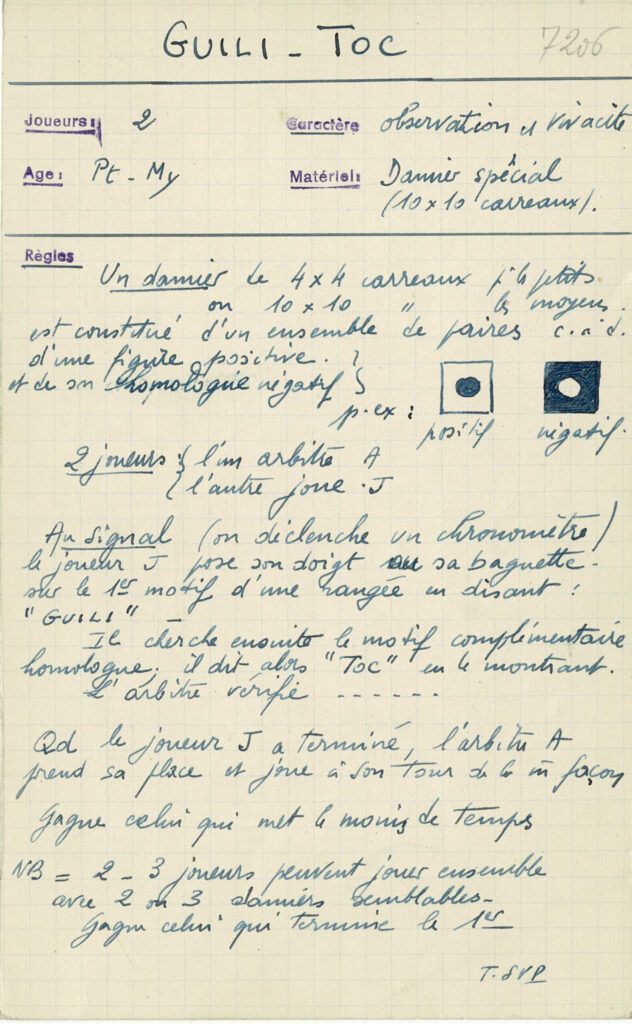 GUILI - TOC 7206
Joueurs: 2 Caractère observation et Vivacité
Age: Pt - My Matériel: Damier spécial
(10 x 10 carreaux).
Règles
Un damier de 4 x 4 carreaux pr les petits
ou 10 x 10 " les moyens.
est constitué d'un ensemble de paires c.à.d.
d'une figure positive. }
et de son homologue négatif }
p.ex :
positif négatif.
2 joueurs: { l'un arbitre A
{ l'autre joue . J
Au signal (on déclenche un chronomètre)
le joueur J pose son doigt ou sa baguette -
sur le 1er motif d'une rangée en disant :
"GUILI" -
Il cherche ensuite le motif complémentaire
homologue. il dit alors "TOC" en le montrant.
L'arbitre vérifie - - - - - -
Qd le joueur J a terminé, l'arbitre A
prend sa place et joue à son tour de la m̄ façon
Gagne celui qui met le moins de temps
NB = 2 - 3 joueurs peuvent jouer ensemble
avec 2 ou 3 damiers semblables -
Gagne celui qui termine le 1er
T. SVP